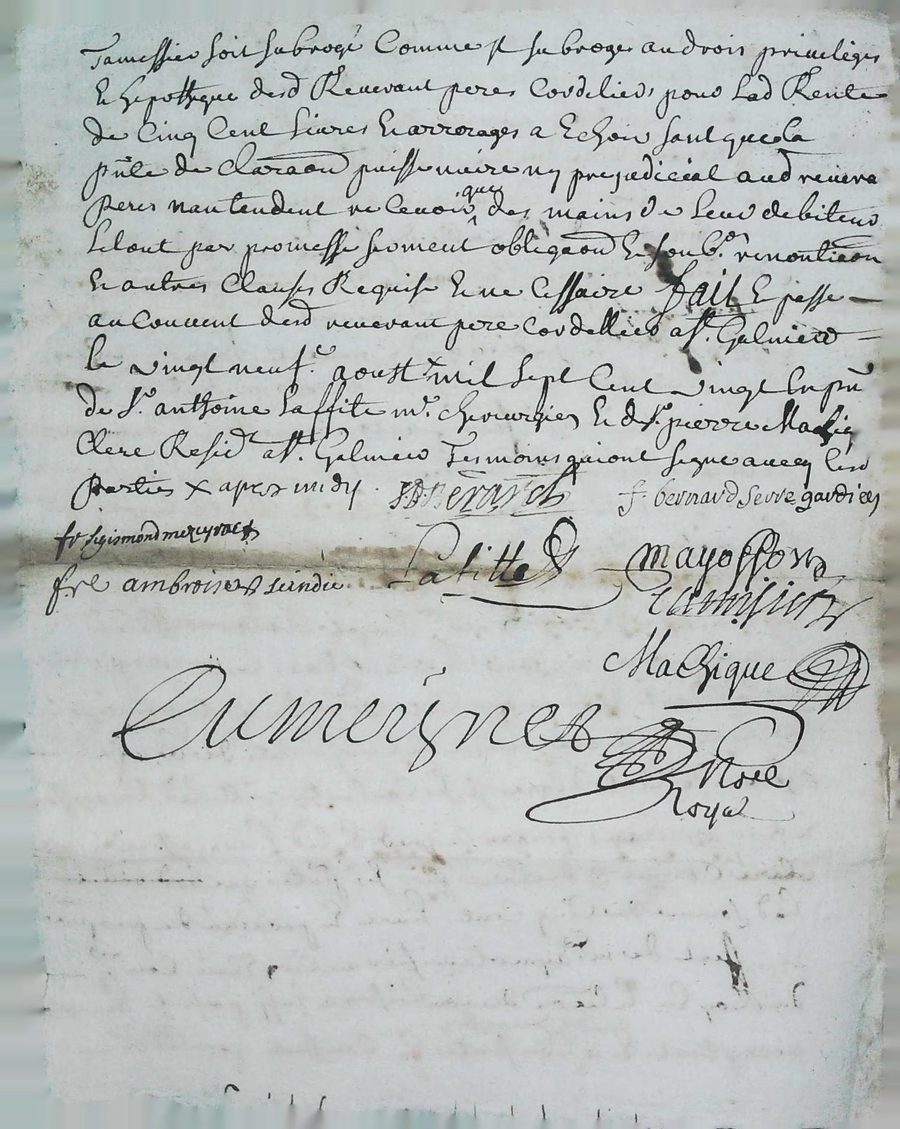 Tamessier soit subrogé Comme il subroge au drois privileges
Et hepotheque desd Reverant peres Cordeliers pour Lad Rente
de Cinq Cent Livres Et arrerages a Echoir sant que la
pnte declaraon puisse nuire ny prejudicial aud revera
peres nantendent recevoir que des mains de Leur debiteur
Le tout par promesse serment obligaon Et soubs. renontiaon
Et autres Clauses Requise Et necessaire fait Et passe
au Couvent desd reverant pere Cordellier a St. Gelmier
le vingt neuf. aoust x mil sept Cent vingt En pn
de Sr. anthoine Laffite mr. chirurgien Et de Sr. pierre Machiq
Clerc Resid a St. Gelmier Tesmoins qui ont signe avecq lesd
parties x apres midy . f. bernard serre gardien
fr sigismond
fre ambroise sindic Lafitte mayossson
Machique
Dumeynes
Nore
Royal